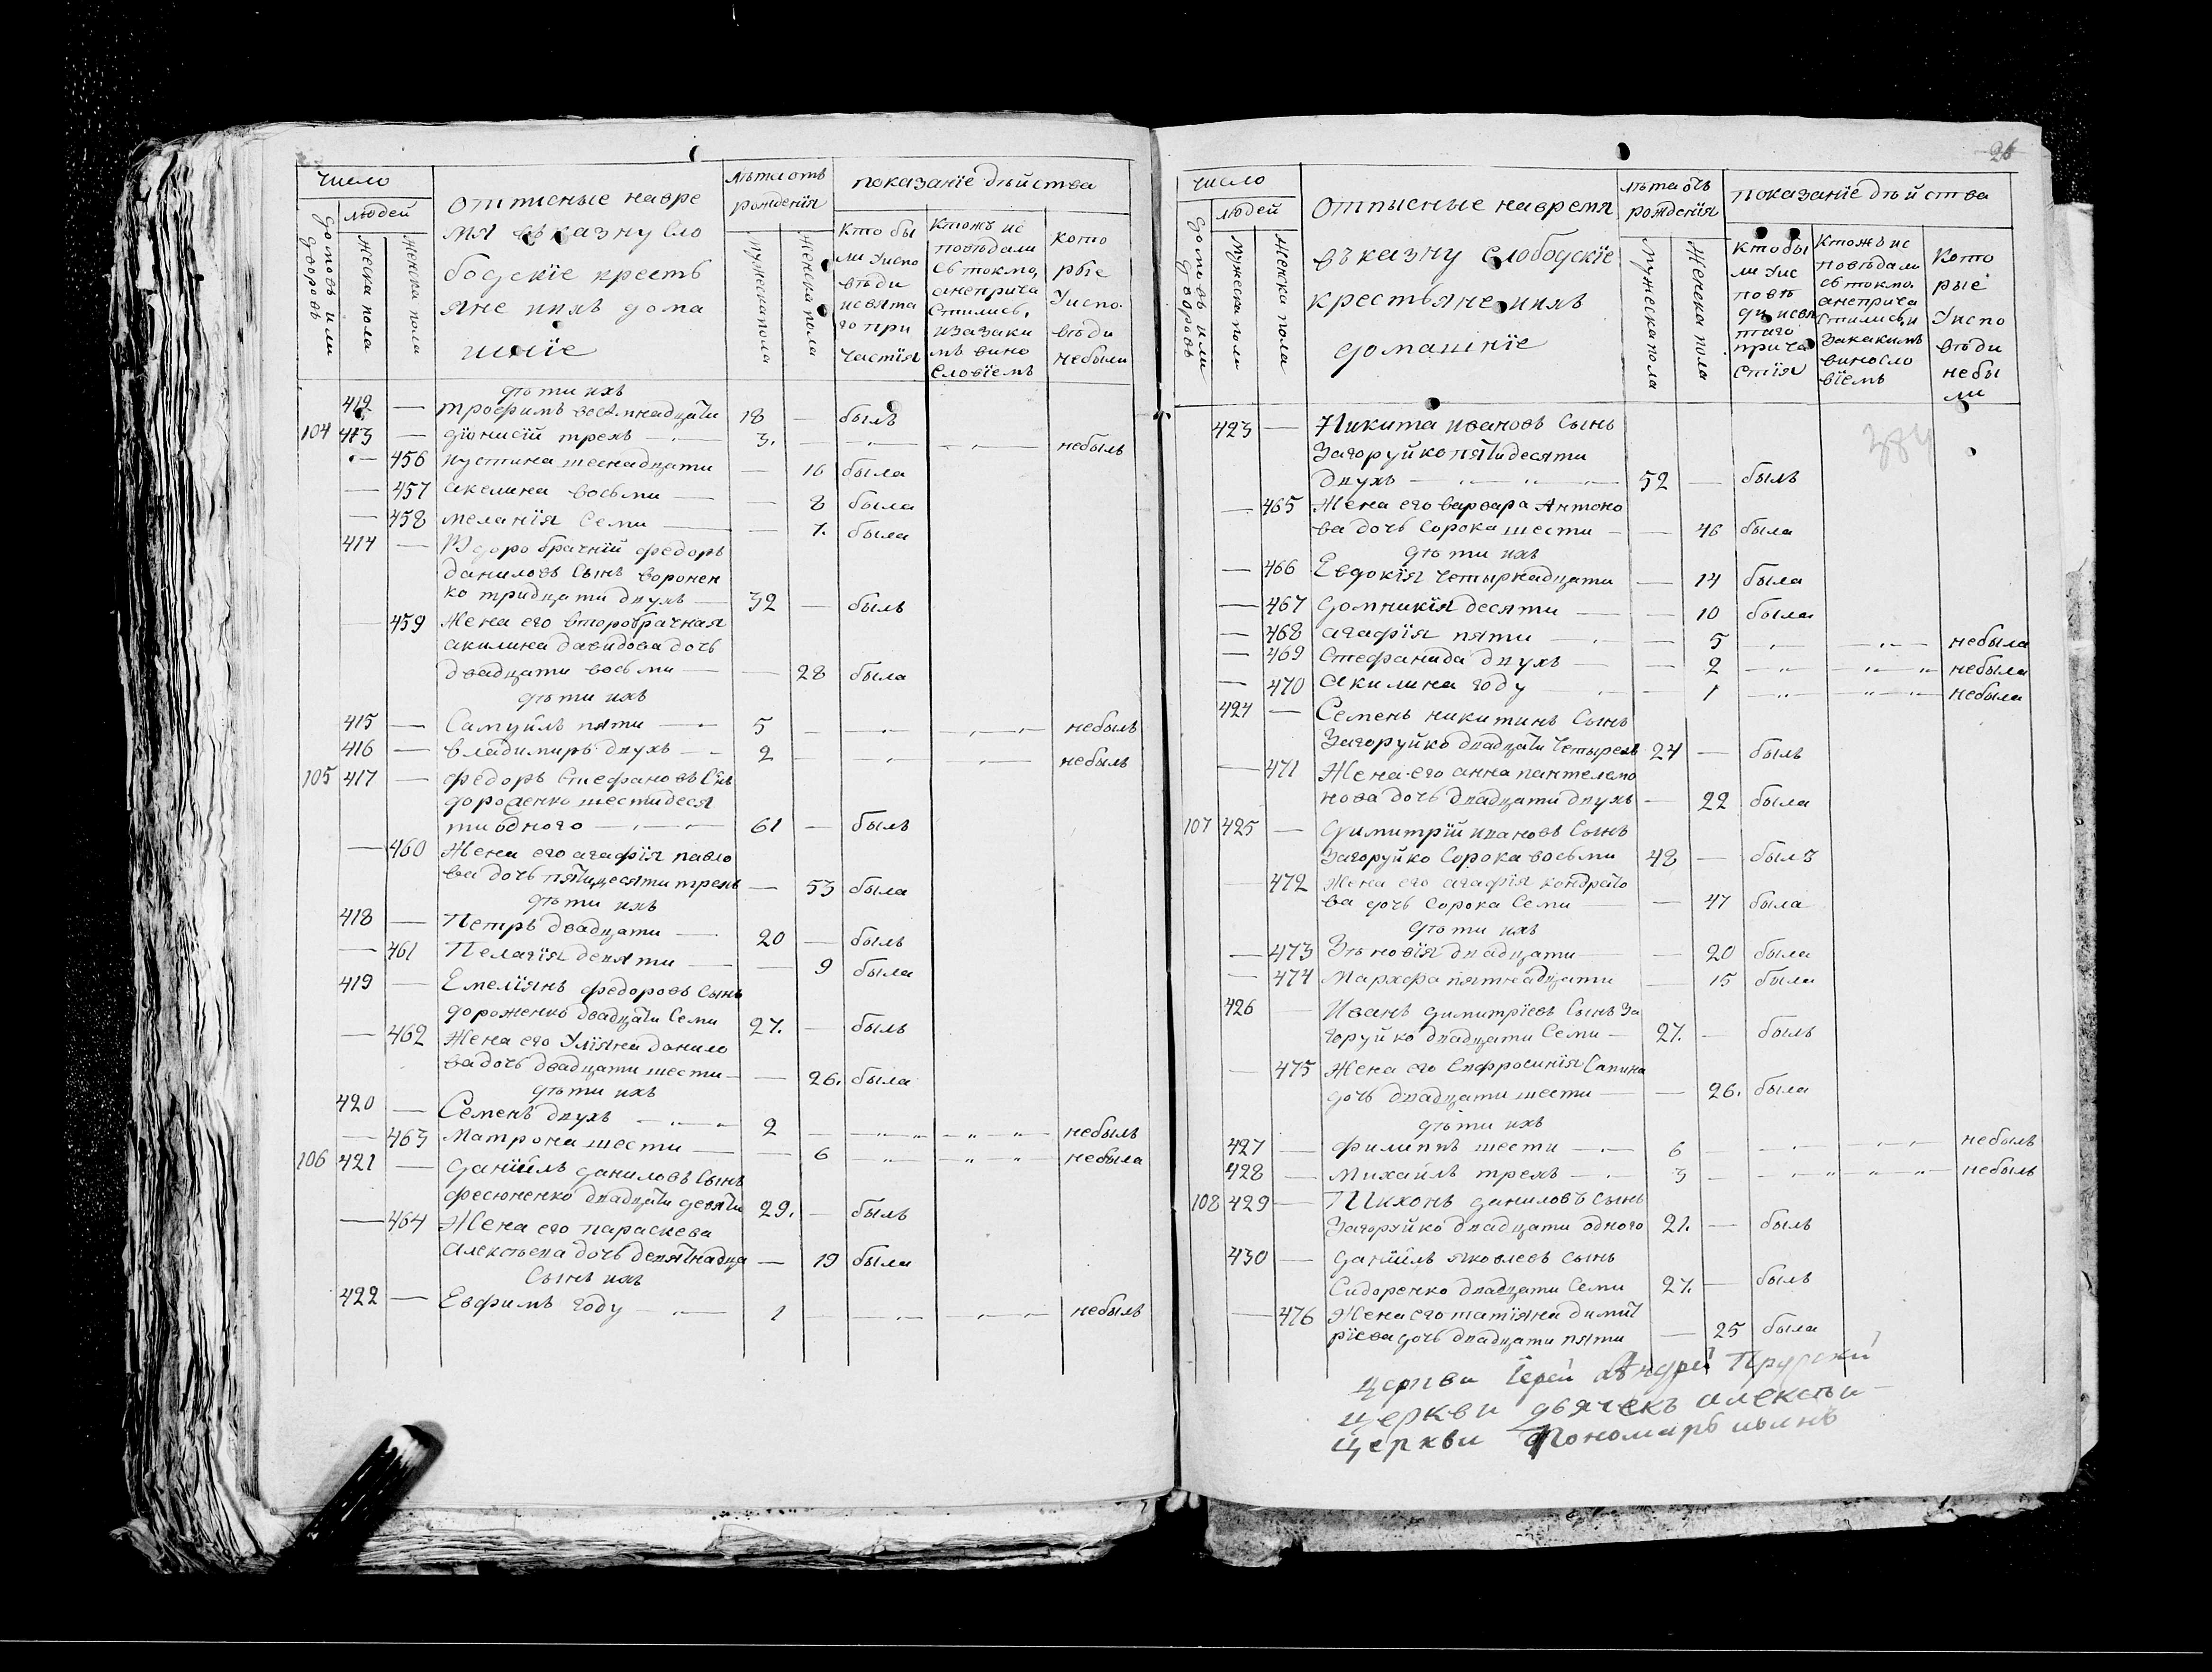 число
людей
домовъ или дворовъ
жеска пола
женска пола
отписные навре
мя въ казну сло
бодскїе кресть
яне ихъ дома
шнїе
лѣта отъ
рожденїя
мужеска пола
женска пола
показанїе дѣйства
кто бы
ли уиспо
вѣди
исвята
го при
частїя
ктожъ ис
повѣдали
сь токмо,
анеприча
стились,
изазаки
мъ вино
словїемъ
кото
рые
уиспо
вѣди
небыли
дѣти ихъ
412 — трофимъ восемнадцати 18 — былъ
104 413 — дїонисїй трехъ 3. небылъ
— 456 иустина шеснадцати — 16 была
— 457 акелина восьми — 8 была
— 458 меланїя семи — 7. была
414 — второбрачнїй федоръ
даниловъ сынъ воронен
ко тридцати двухъ 32 — былъ
459 жена его второбрачная
акилина давидова дочь
двадцати восьми — 28 была
дѣти ихъ
415 — Самуилъ пяти 5 небылъ
416 — владимиръ двухъ 2 небылъ
105 417 — федоръ стефановъ сынъ
дороженко шестидеся
ти одного 61 — былъ
— 460 жена его агафїя павло
ва дочь пятидесяти трехъ — 53 была
дѣти ихъ
418 — Петръ двадцати 20 — былъ
— 461 Пелагїя девяти — 9 была
419 — Емелїянъ федоровъ сынъ
дороженко двадцати семи 27. — былъ
— 462 жена его Улїяна данило
ва дочь двадцати шести — 26. была
дѣти ихъ
420 — Семенъ двухъ 2 небылъ
— 463 матрона шести — 6 небыла
106 421 — данїилъ даниловъ сынъ
фесюненко двадцати девяти 29. — былъ
— 464 Жена его параскева
алексѣева дочь девятнадца — 19 была
сынъ ихъ
422 — Евфимъ году 1 небылъ
26
число
людей
домовъ или дворовъ
мужеска пола
женска пола
отписные навремя
въ казну слободскїе
крестьяне ихъ
домашнїе
лѣта отъ
рожденїя
мужеска пола
женска пола
показанїе дѣйства
кто бы
ли уис
повѣ
ди исвя
таго
прича
стїя
ктожъ ис
повѣдали
сь токмо,
анеприча
стились, и
закакимъ
виносло
вїемъ
кото
рые
уиспо
вѣди
небы
ли
423 — Никита ивановъ сынъ
Загоруйко пятидесяти
двухъ 52 — былъ
— 465 жена его варвара Антоно
ва дочь сорока шести — 46 была
дѣти ихъ
— 466 Евдокїя четырнадцати — 14 была
— 467 домникїя десяти — 10 была
— 468 агафїя пяти — 5 небыла
— 469 стефанида двухъ — 2 небыла
— 470 акилина году — 1 небыла
424 — Семенъ никитинъ сынъ
Загоруйко двадцати четырехъ 24 — былъ
— 471 Жена его анна пантелемо
нова дочь двадцати двухъ — 22 была
107 425 — Димитрїй ивановъ сынъ
Загоруйко сорока восьми 48 — былъ
— 472 жена его агафїя кондрато
ва дочь сорока семи — 47 была
дѣти ихъ
— 473 Зѣновїя двадцати — 20 была
— 474 Марѳфа пятнадцати — 15 была
426 — Иванъ димитрїевъ сынъ за
горуйко двадцати семи 27. — былъ
— 475 жена его евфросинїя савина
дочь двадцати шести — 26. была
дѣти ихъ
427 — филиппъ шести 6 небылъ
428 — михаилъ трехъ 3 небылъ
108 429 — Тихонъ даниловъ сынъ
Загоруйко двадцати одного 21. — былъ
430 — данїилъ яковлевъ сынъ
Сидоренко двадцати семи 27. — былъ
— 476 Жена его татїяна димит
рїева дочь двадцати пяти — 25 была
церкви Іерей Андрей Прурский
церкви дьячекъ алексѣи
церкви Пономарь